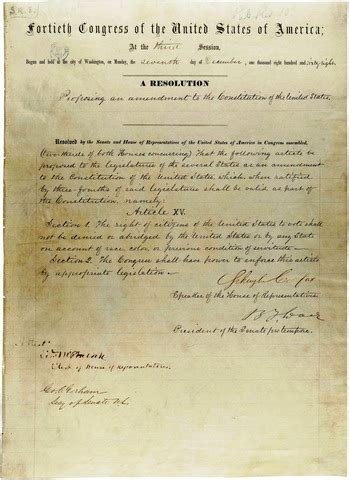 S.R. 8.
Fortieth Congress of the United States of America;
At the third Session,
Begun and held at the city of Washington, on Monday, the seventh day of December, one thousand eight hundred and sixty-eight.
A RESOLUTION
Proposing an amendment to the Constitution of the United States.
Resolved by the Senate and House of Representatives of the United States of America in Congress assembled,
(two-thirds of both Houses concurring) That the following article be
proposed to the legislatures of the several States as an amendment
to the Constitution of the United States which, when ratified
by three-fourths of said legislatures shall be valid as part of
the Constitution, namely:
Article XV.
Section 1. The right of citizens of the United States to vote shall
not be denied or abridged by the United States or by any State
on account of race, color, or previous condition of servitude—
Section 2. The Congress shall have power to enforce this article
by appropriate legislation—
Schuyler Colfax
Speaker of the House of Representatives.
B F Wade
President of the Senate pro tempore.
Attest:
Clerk of House of Representatives.
Geo. C. Gorham
Secy of Senate U.S.